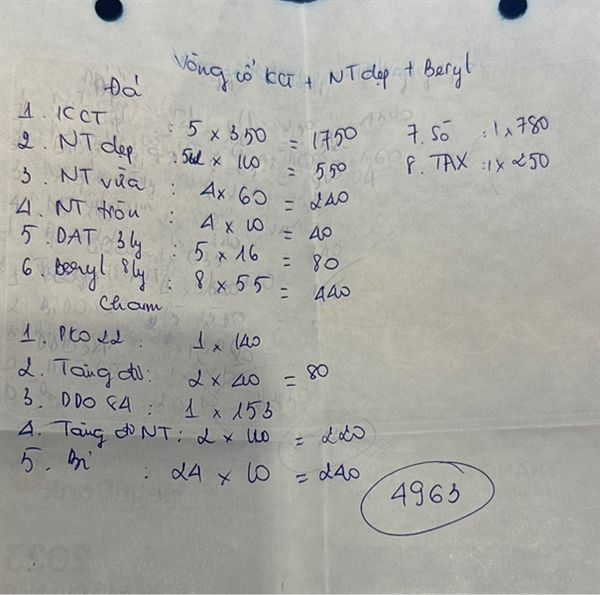 Vòng cổ KCT + NT dẹp + Beryl
Đá
1. KCT : 5 x 350 = 1750
2. NT dẹp : 5 x 110 = 550
3. NT vừa : 4 x 60 = 240
4. NT tròn : 4 x 10 = 40
5. DAT 3ly : 5 x 16 = 80
6. Beryl 8ly : 8 x 55 = 440
7. Sò : 1 x 780
8. TAX : 1 x 250
Charm
1. PKO 22 : 1 x 140
2. Tàng đỏ : 2 x 40 = 80
3. DDO 84 : 1 x 153
4. Tàng đỏ NT : 2 x 110 = 220
5. Bi : 24 x 10 = 240
4963